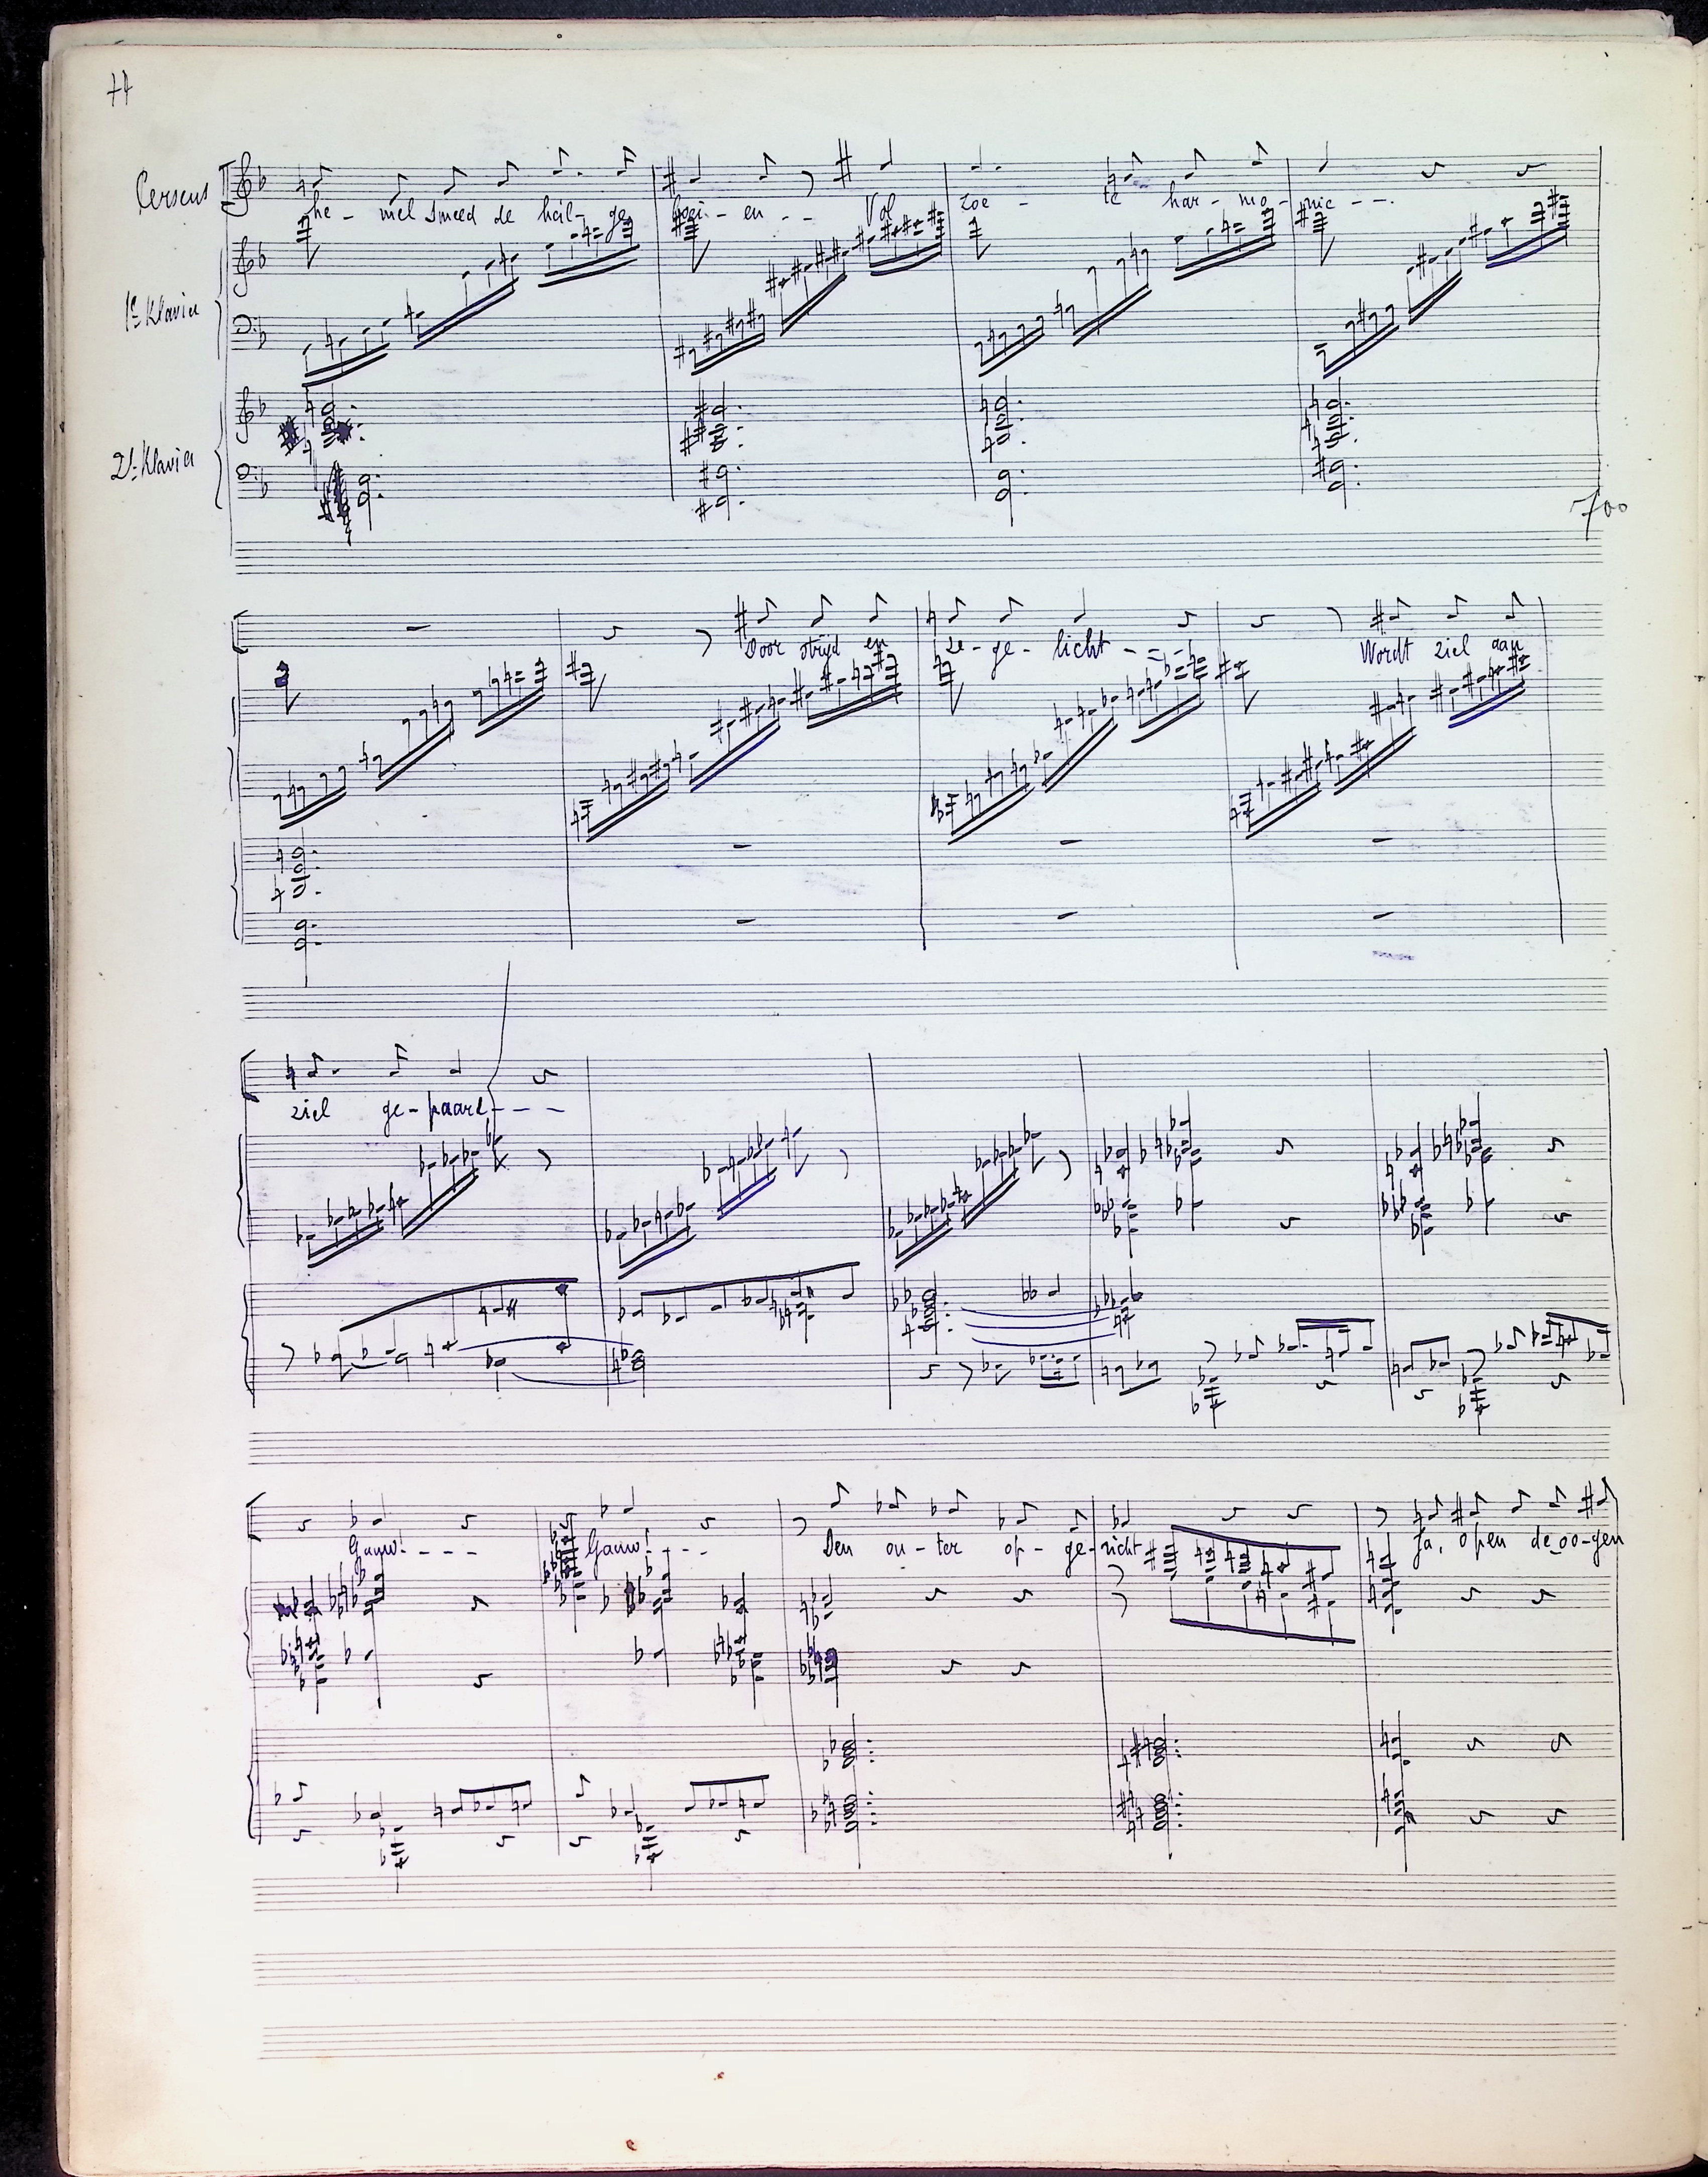 Perseus
he - mel smeed de heil - ge boei - en - - Vol zoe - te har - mo - nie - - -
1e Klavier
2de Klavier
700
Door strijd en ze - ge - licht - - - Wordt ziel aan
ziel ge - paard - - -
Gauw! - - - Gauw! - - - Den ou - ter op - ge - richt Ja, open de oo - gen